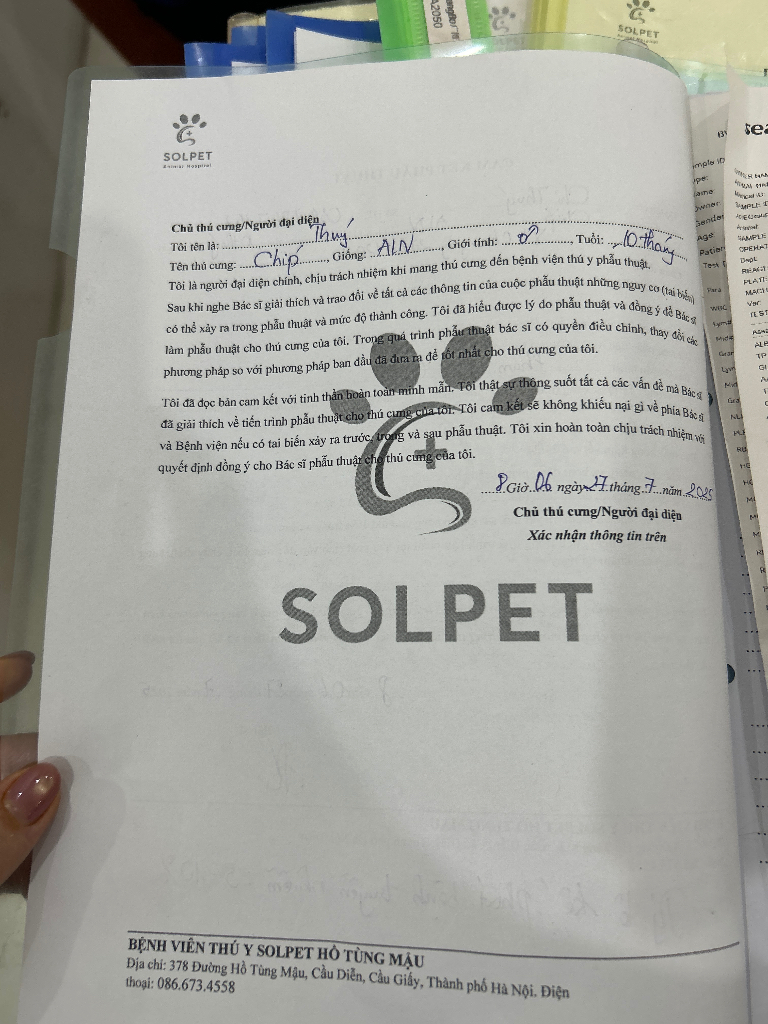 SOLPET
Animal Hospital
SOLPET
Chủ thú cưng/Người đại diện
Tôi tên là: Thuý
Tên thú cưng: Chip, Giống: ALN, Giới tính: ♂, Tuổi: 10 tháng
Tôi là người đại diện chính, chịu trách nhiệm khi mang thú cưng đến bệnh viện thú y phẫu thuật.
Sau khi nghe Bác sĩ giải thích và trao đổi về tất cả các thông tin của cuộc phẫu thuật những nguy cơ (tai biến)
có thể xảy ra trong phẫu thuật và mức độ thành công. Tôi đã hiểu được lý do phẫu thuật và đồng ý để Bác sĩ
làm phẫu thuật cho thú cưng của tôi. Trong quá trình phẫu thuật bác sĩ có quyền điều chỉnh, thay đổi các
phương pháp so với phương pháp ban đầu đã đưa ra để tốt nhất cho thú cưng của tôi.
Tôi đã đọc bản cam kết với tinh thần hoàn toàn minh mẫn. Tôi thật sự thông suốt tất cả các vấn đề mà Bác sĩ
đã giải thích về tiến trình phẫu thuật cho thú cưng của tôi. Tôi cam kết sẽ không khiếu nại gì về phía Bác sĩ
và Bệnh viện nếu có tai biến xảy ra trước, trong và sau phẫu thuật. Tôi xin hoàn toàn chịu trách nhiệm với
quyết định đồng ý cho Bác sĩ phẫu thuật cho thú cưng của tôi.
8 Giờ 06 ngày 27 tháng 7 năm 2025
Chủ thú cưng/Người đại diện
Xác nhận thông tin trên
SOLPET
BỆNH VIÊN THÚ Y SOLPET HỒ TÙNG MẬU
Địa chỉ: 378 Đường Hồ Tùng Mậu, Cầu Diễn, Cầu Giấy, Thành phố Hà Nội. Điện
thoại: 086.673.4558